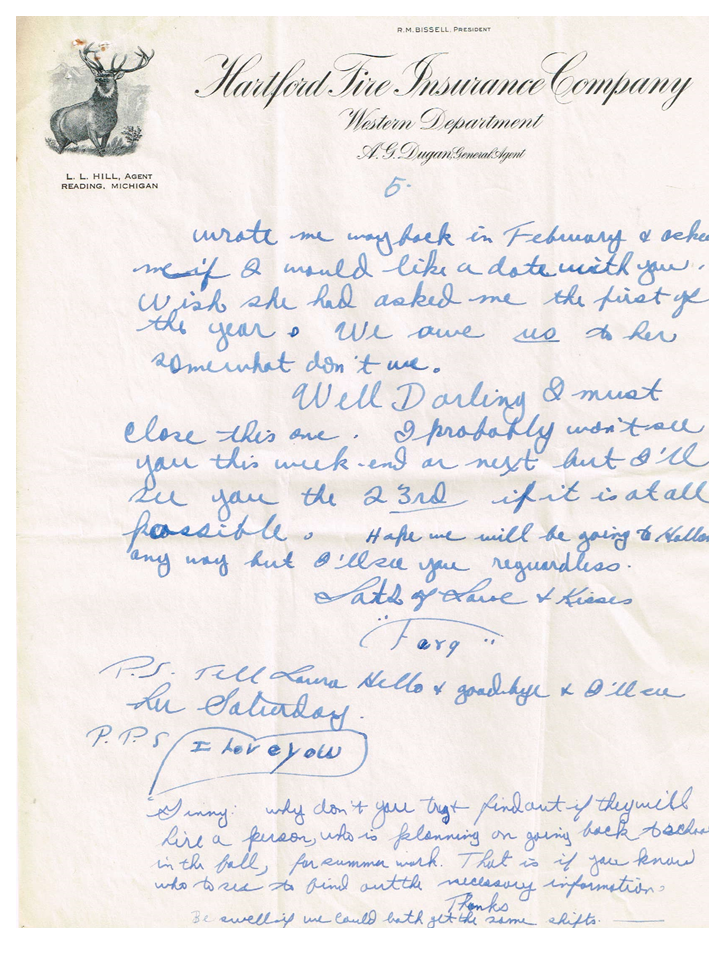 R.M. BISSELL, PRESIDENT
Hartford Fire Insurance Company
Western Department
A. G. Dugan, General Agent
L. L. HILL, AGENT
READING, MICHIGAN
5-
wrote me way back in February & aske
me if I would like a date with you.
Wish she had asked me the first of
the year. We owe us to her
somewhat don't we.
Well Darling I must
close this one. I probably won't see
you this week-end or next but I'll
see you the 23rd if it is at all
possible. Hope we will be going to
any way but I'll see you reguardless.
Lots of Love & Kisses
"Farg"
P.S. Tell Laura Hello & goodbye & I'll see
her Saturday.
P.P.S I love you
Ginny: why don't you try & find out if they will
hire a person, who is planning on going back to schoo
in the fall, for summer work. That is if you know
who to see to find out the necessary information.
Thanks
Be swell if we could both get the same shifts.